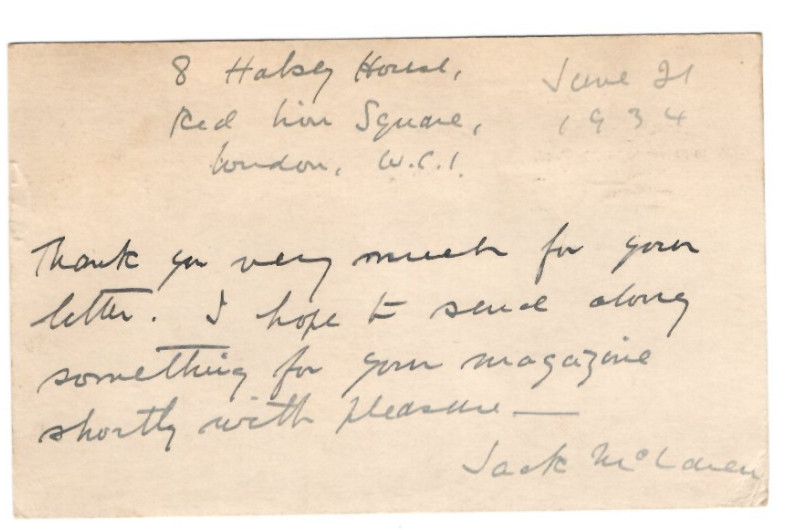 8 Halsey House,
Red Lion Square,
London, W.C.1.
June 21
1934
Thank you very much for your
letter. I hope to send along
something for your magazine
shortly with pleasure —
Jack McLaren